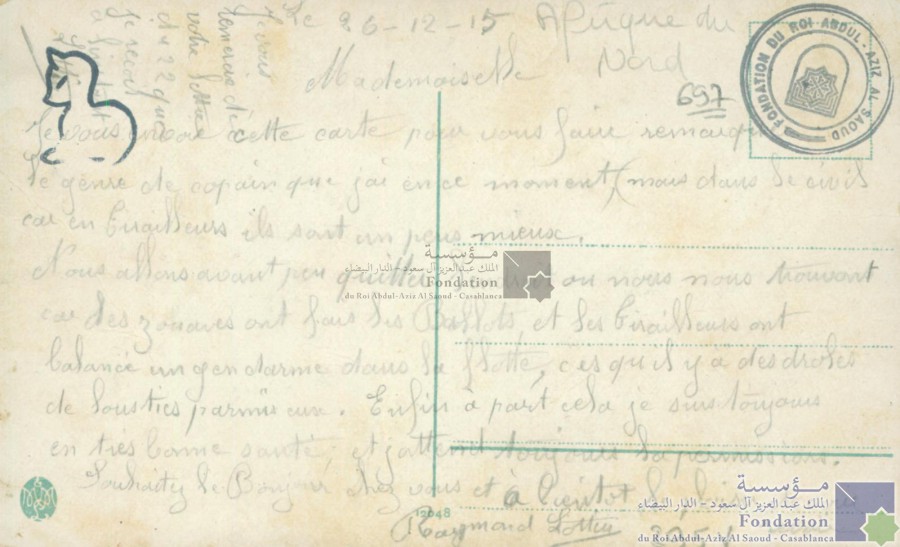 Le 26-12-15 Afrique du
Nord
Mademoiselle
697
FONDATION DU ROI ABDUL-AZIZ AL SAOUD
Je vous envoie cette carte pour vous faire remarquer
le genre de copain que j'ai en ce moment (mais dans le civil
car en tirailleurs ils sont un peu mieux.
Nous allons avant peu quitter ou nous nous trouvont
car des zouaves ont fait les Ballots et les tirailleurs ont
balancé un gendarme dans la flotte, c'es qu'il y a des droles
de loustics parmis eux. Enfin à part cela je suis toujours
en très bonne santé, et j'attend toujours la permissions.
Souhaitez le Bonjour chez vous et à bientot
Raymond
12048
Je reçois
votre lettre
du 22 que
مؤسسة
الملك عبد العزيز آل سعود - الدار البيضاء
Fondation
du Roi Abdul-Aziz Al Saoud - Casablanca
مؤسسة
الملك عبد العزيز آل سعود - الدار البيضاء
Fondation
du Roi Abdul-Aziz Al Saoud - Casablanca